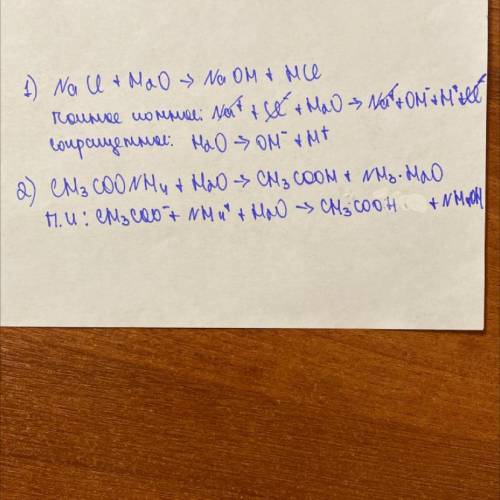 1) NaCl + H2O → NaOH + HCl
полное ионное: Na⁺ + Cl⁻ + H2O → Na⁺ + OH⁻ + H⁺ + Cl⁻
сокращенное: H2O → OH⁻ + H⁺
2) CH3COONH4 + H2O → CH3COOH + NH3·H2O
П.И: CH3COO⁻ + NH4⁺ + H2O → CH3COOH + NH4OH